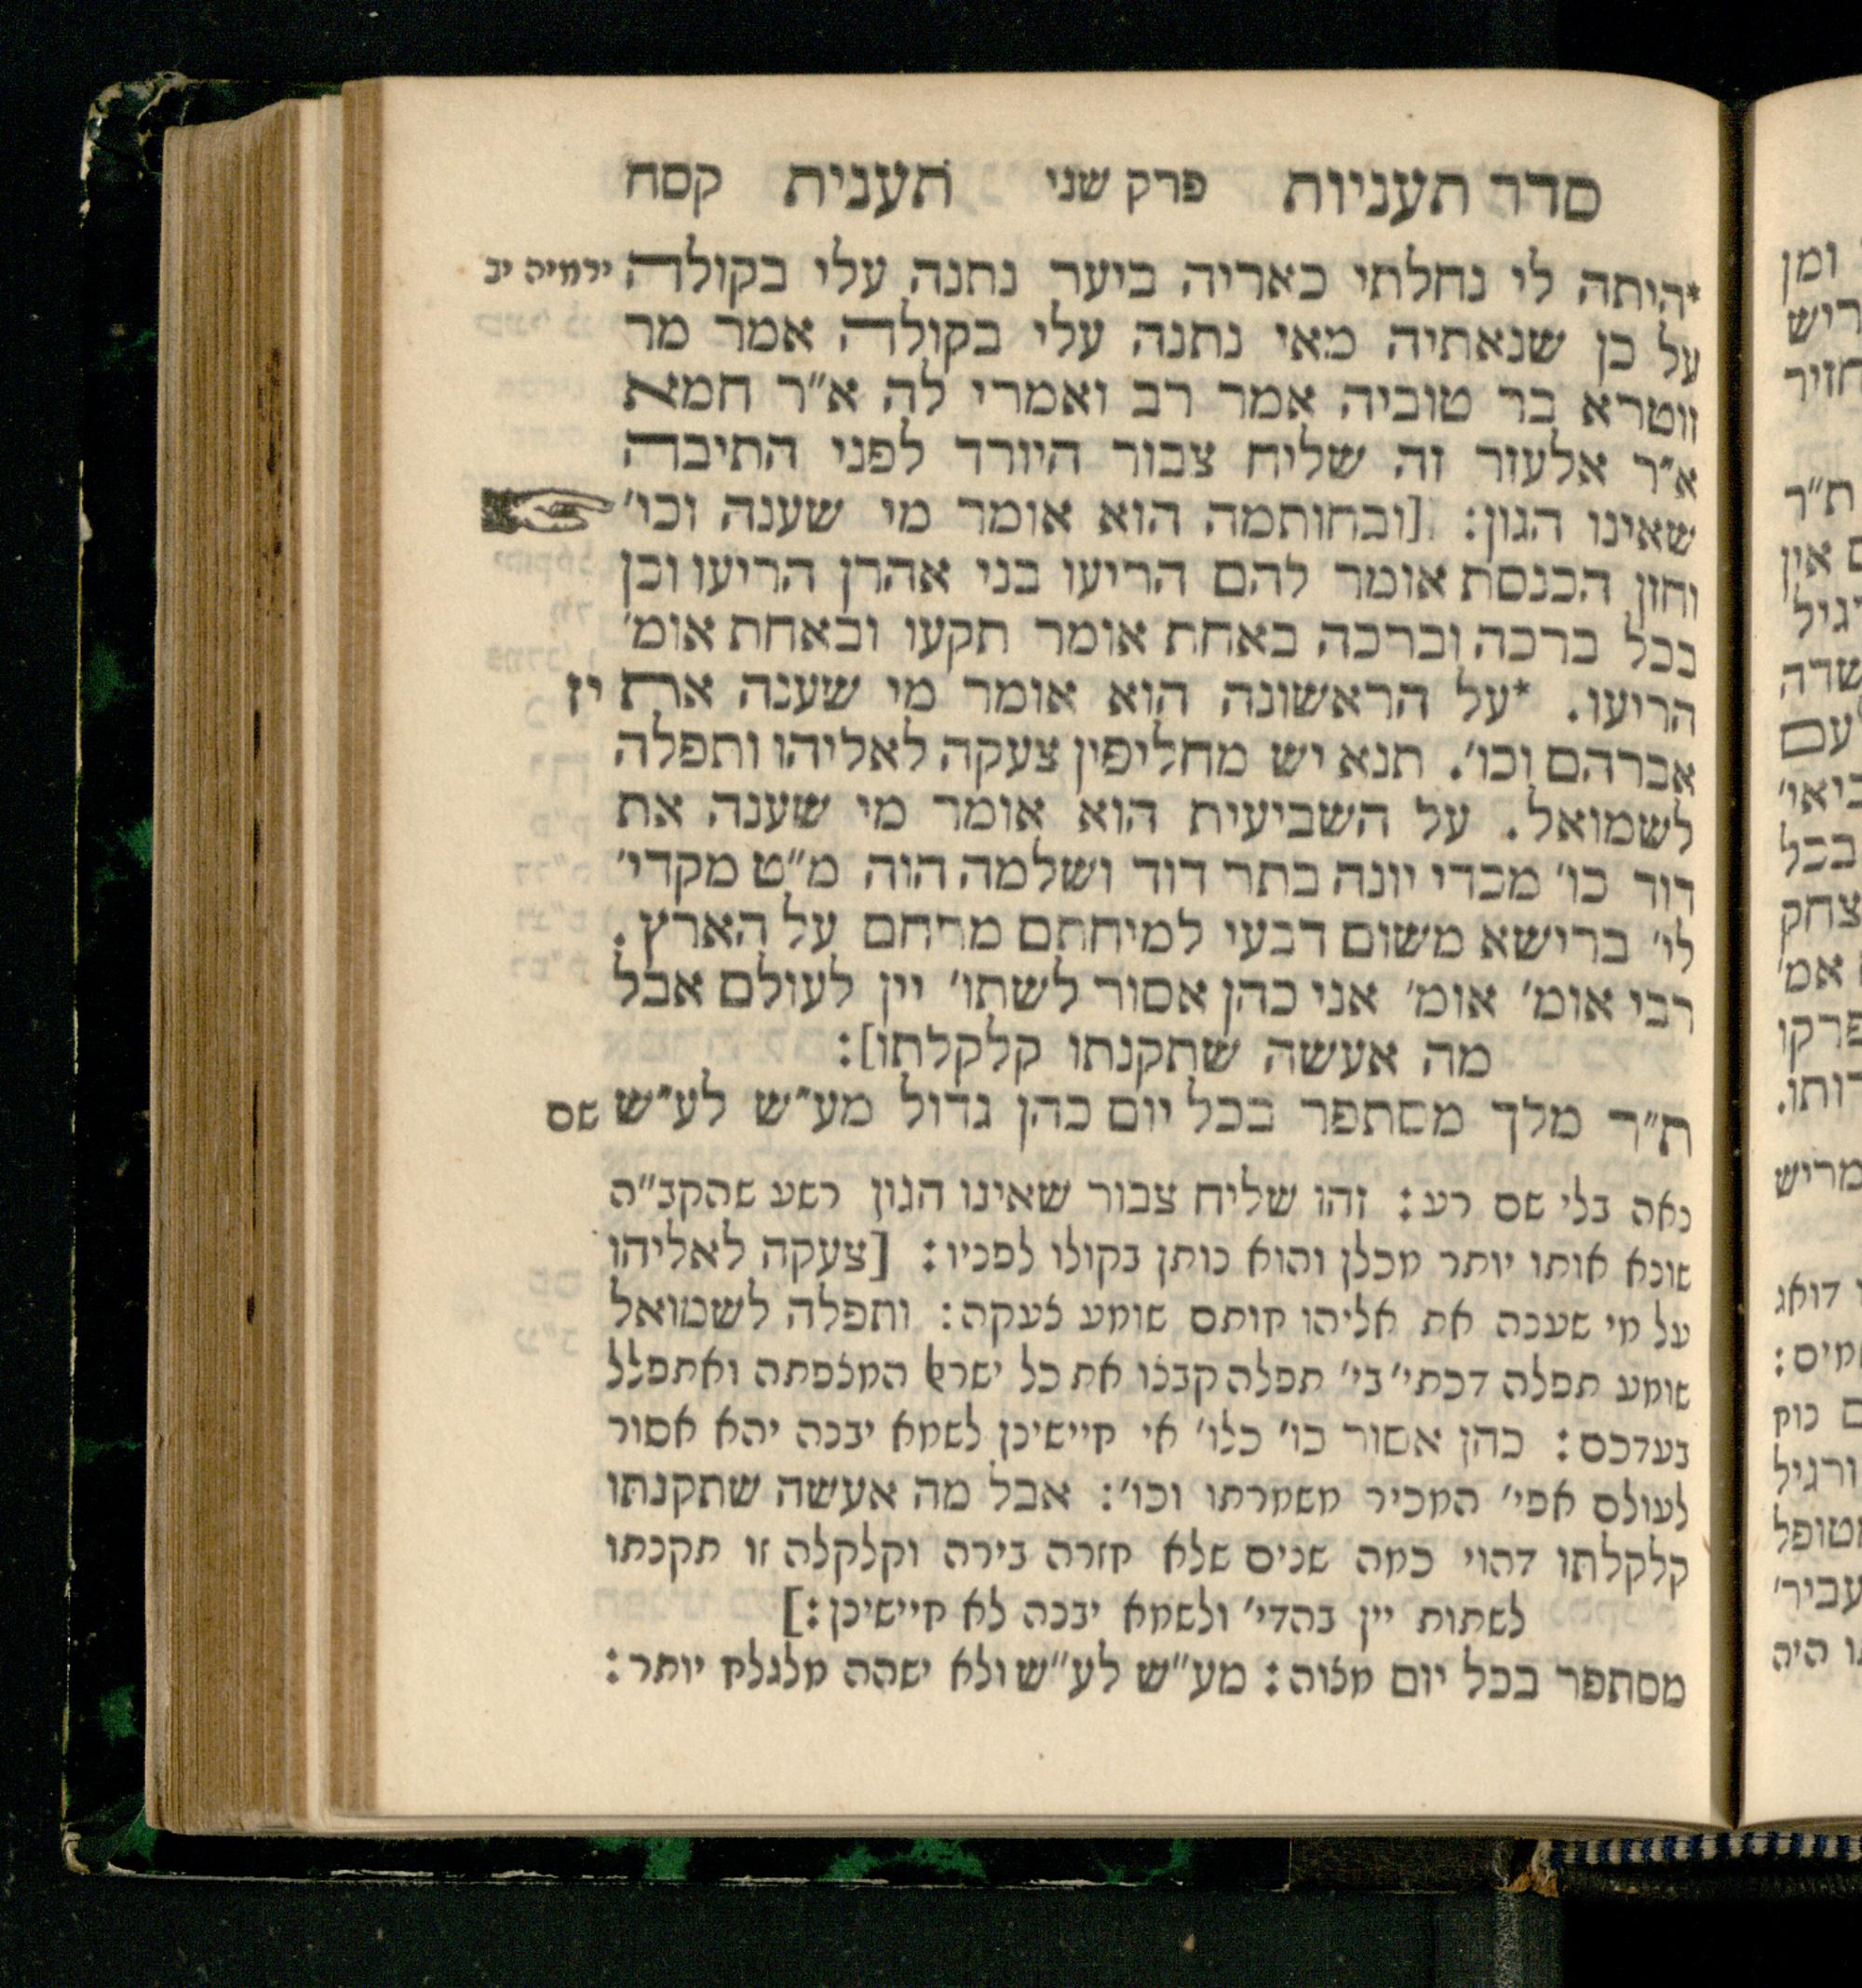 סדר תעניות פרק שני תענית קסח
*היתה לי נחלתי כאריה ביער נתנה עלי בקולה ירמיה יב
על כן שנאתיה מאי נתנה עלי בקולה אמר מר
זוטרא בר טוביה אמר רב ואמרי לה א"ר חמא
א"ר אלעזר זה שליח צבור היורד לפני התיבה
שאינו הגון: [ובחותמה הוא אומר מי שענה וכו'
וחזן הכנסת אומר להם הריעו בני אהרן הריעו וכן
בכל ברכה וברכה באחת אומר תקעו ובאחת אומ'
הריעו. *על הראשונה הוא אומר מי שענה את יז
אברהם וכו'. תנא יש מחליפין צעקה לאליהו ותפלה
לשמואל. על השביעית הוא אומר מי שענה את
דוד כו' מכדי יונה בתר דוד ושלמה הוה מ"ט מקדי'
לי' ברישא משום דבעי למיחתם מרחם על הארץ.
רבי אומ' אומ' אני כהן אסור לשתו' יין לעולם אבל
מה אעשה שתקנתו קלקלתו]:
ת"ר מלך מסתפר בכל יום כהן גדול מע"ש לע"ש שם
באה בלי שם רע: זהו שליח צבור שאינו הגון רשע שהקב"ה
שונא אותו יותר מכלן והוא נותן בקולו לפניו: [צעקה לאליהו
על מי שענה את אליהו חותם שומע צעקה: ותפלה לשמואל
שומע תפלה דכתי' בי' תפלה קבצו את כל ישראל המצפתה ואתפלל
בעדכם: כהן אסור כו' כלו' אי חיישינן לשמא יבנה יהא אסור
לעולם אפי' המכיר משמרתו וכו': אבל מה אעשה שתקנתו
קלקלתו דהוי כמה שנים שלא חזרה בירה וקלקלה זו תקנתו
לשתות יין בהדי' ולשמא יבנה לא חיישינן:]
מסתפר בכל יום מצוה: מע"ש לע"ש ולא ישהה מלגלח יותר: